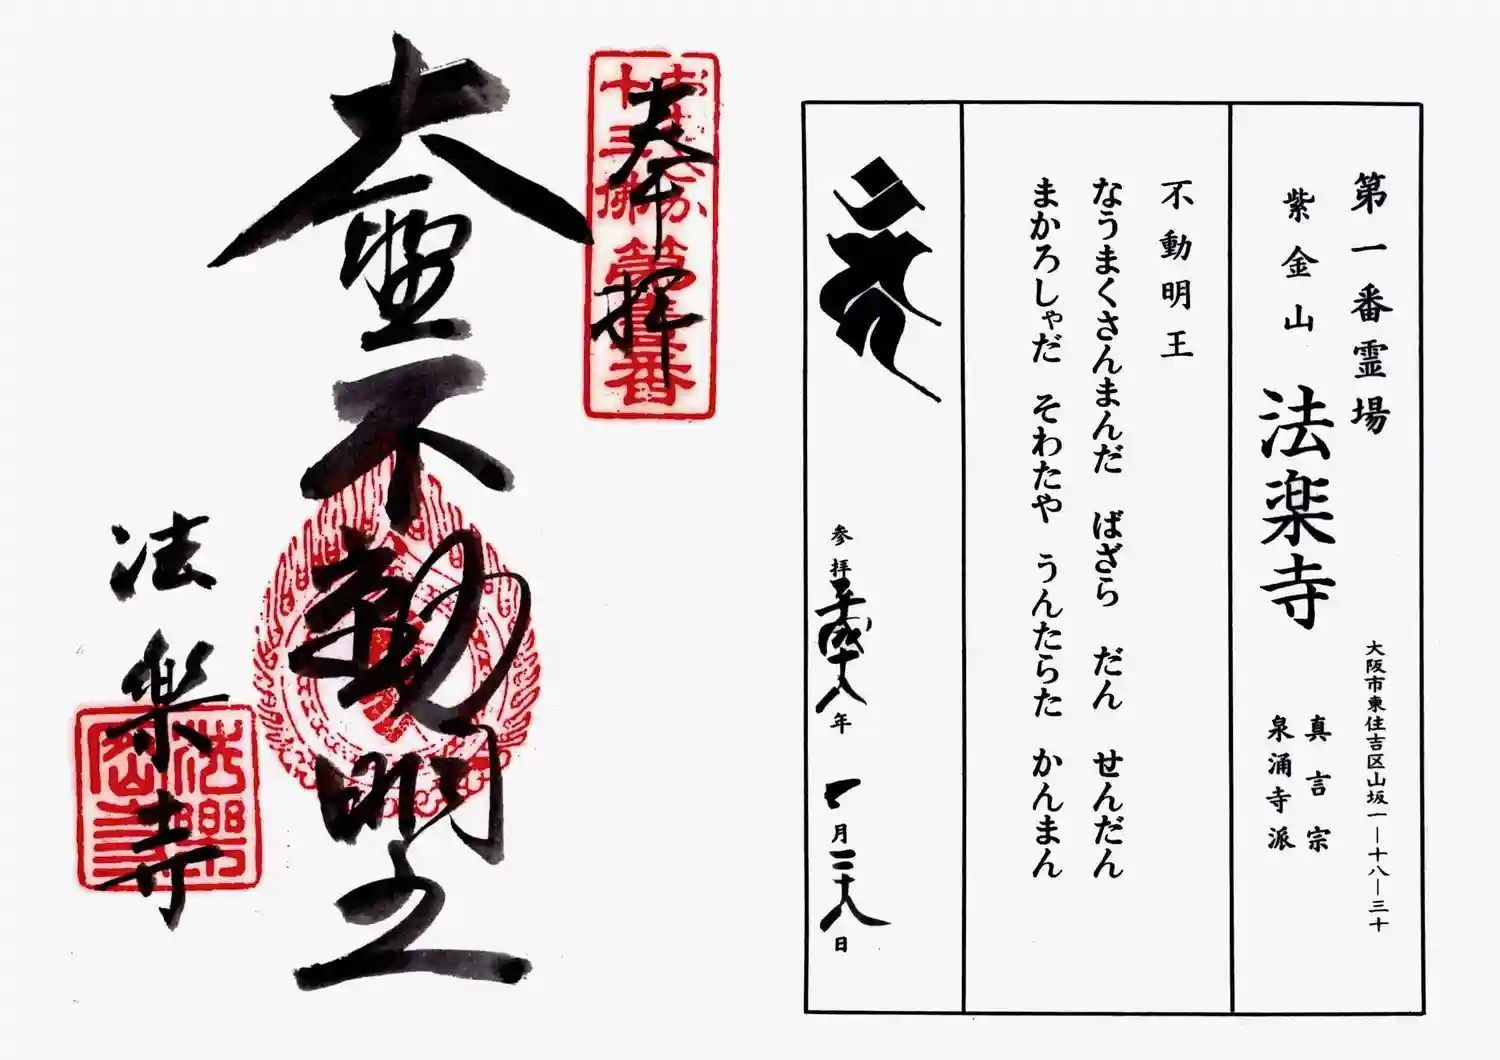 第一番霊場
大阪市東住吉区山坂一―十八―三十
紫金山 法楽寺
真言宗
泉涌寺派
不動明王
なうまくさんまんだ ばざら だん せんだん
まかろしゃだ そわたや うんたらた かんまん
参拝平成十八年 一月二十八日
奉拝
おおさか
十三佛
第壹番
大聖不動明王
法樂寺